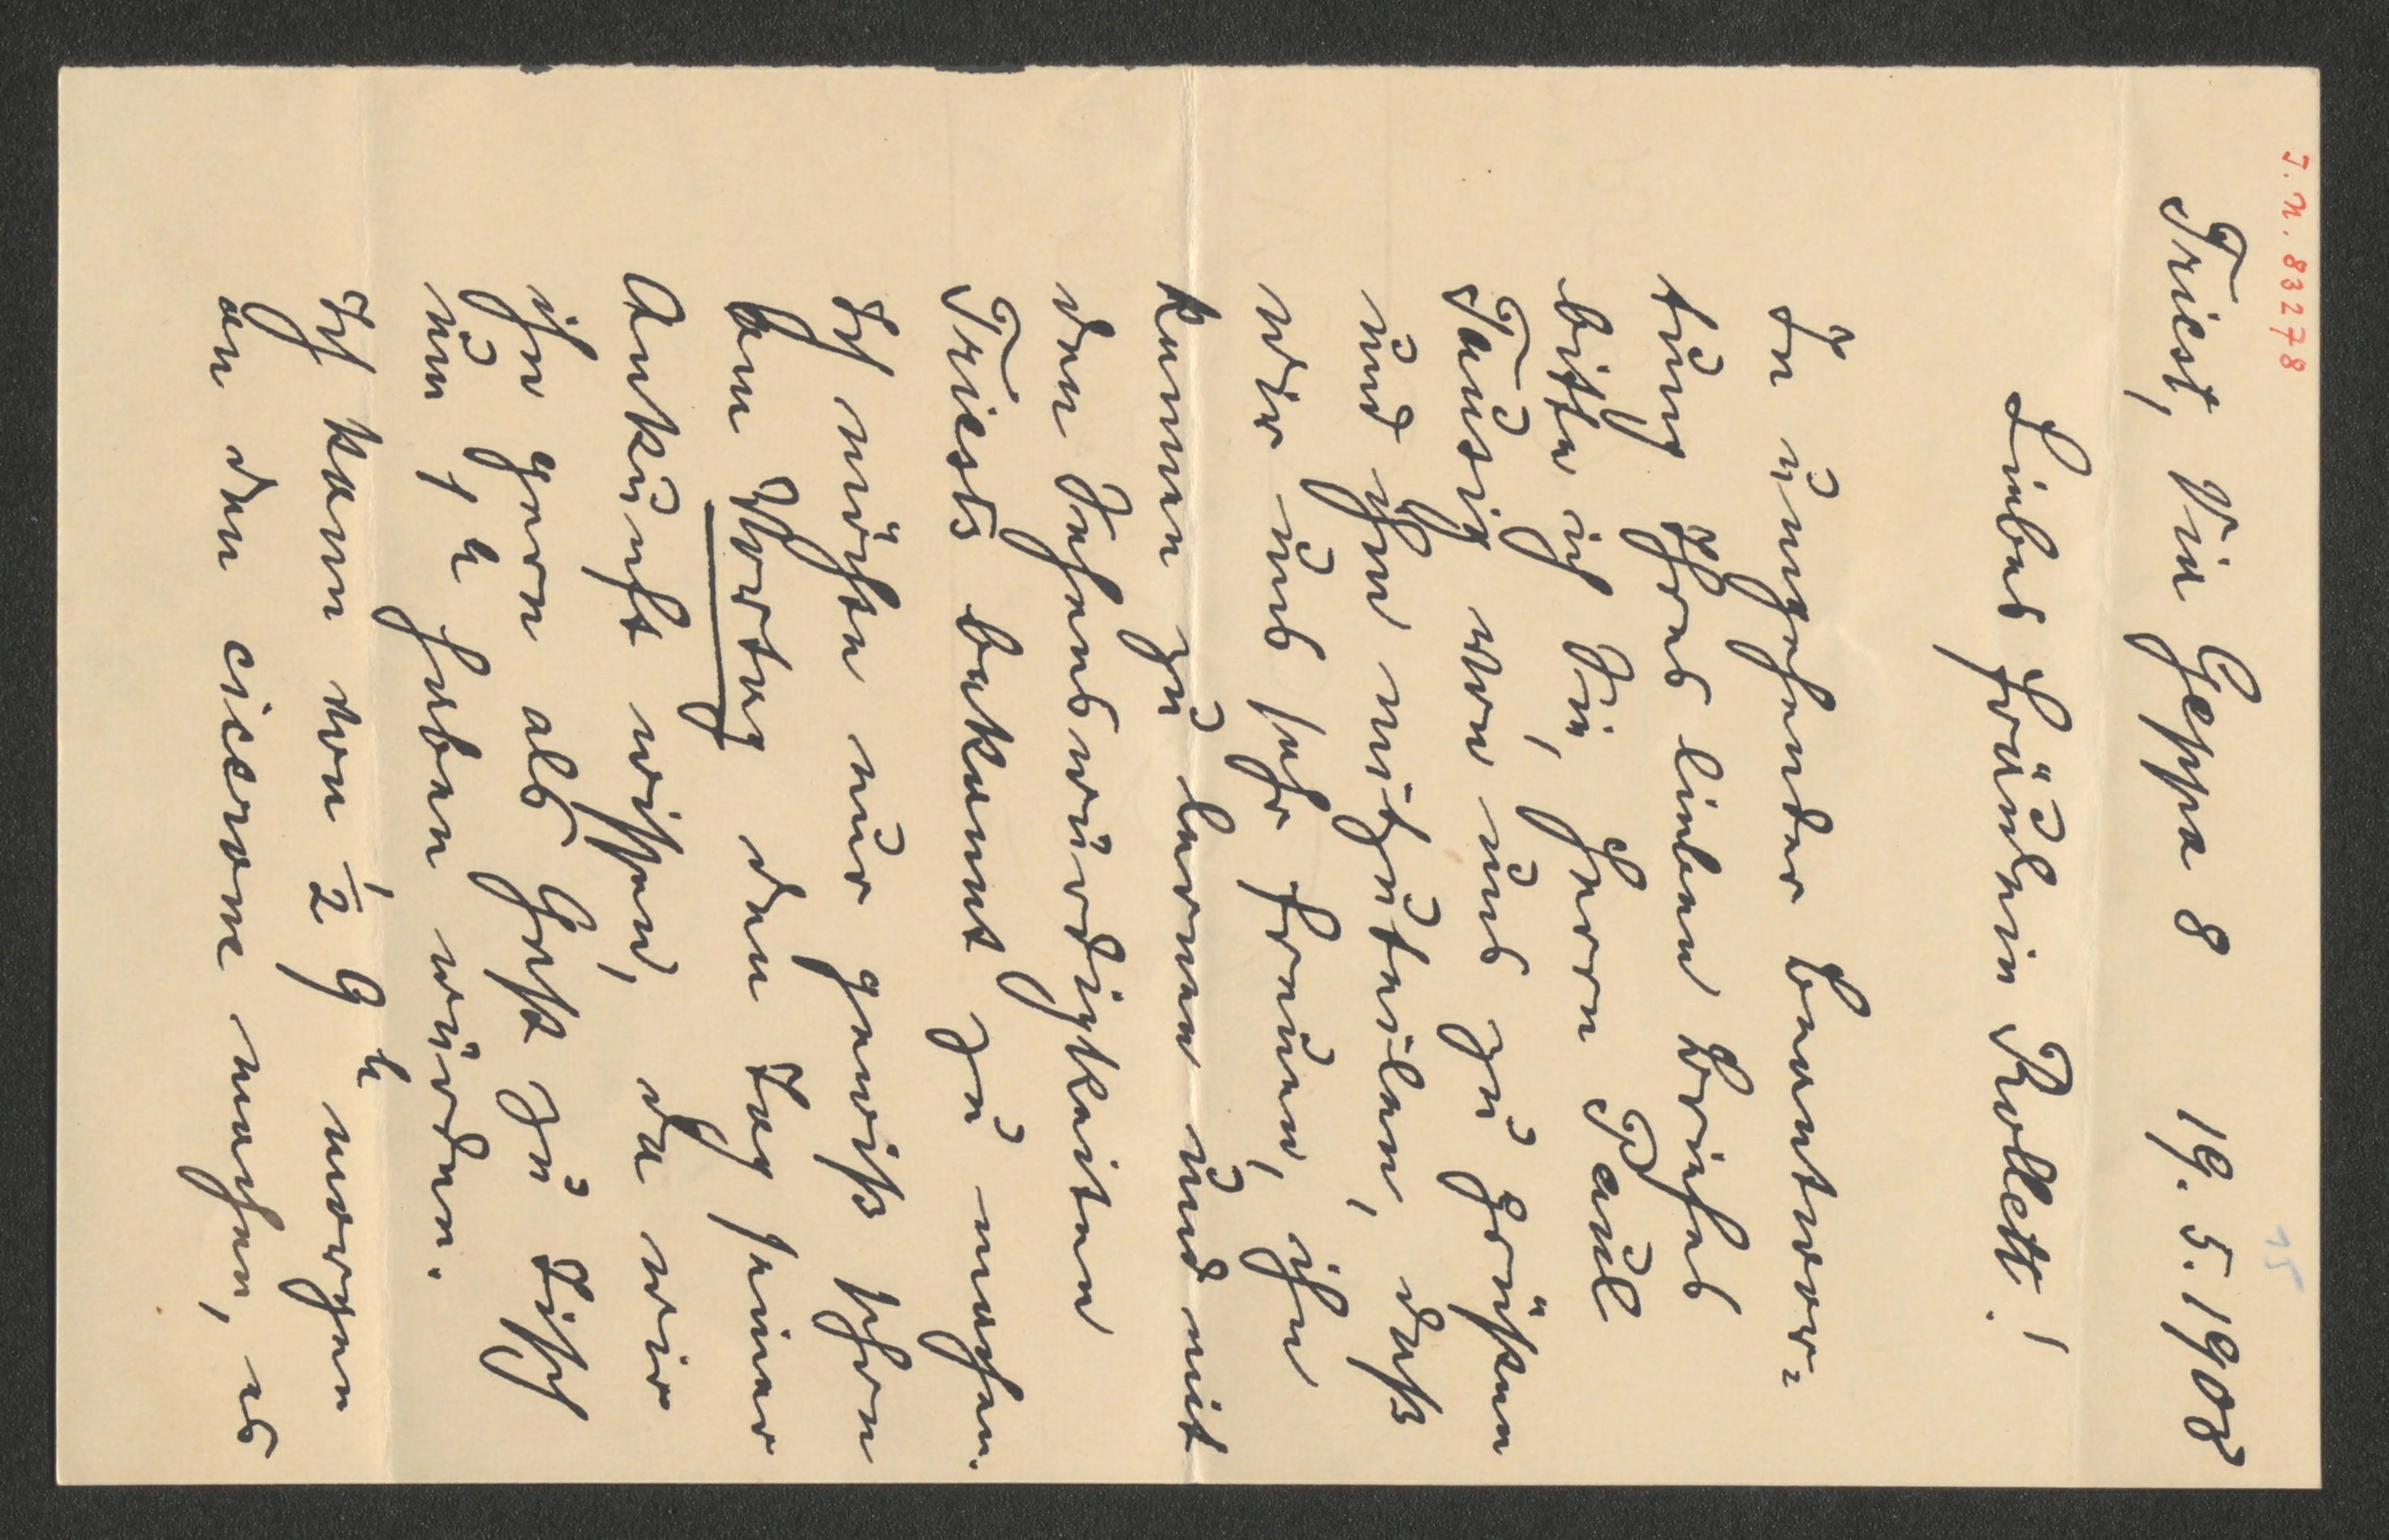 I. N. 83278
15
Triest, Via Geppa 8 19. 5. 1908
Liebes Fräulein Rollett!
In umgehender Beantwor=
tung Ihres lieben Briefes
bitte ich Sie, Herrn Paul
Taussig von uns zu grüßen
und ihm mitzuteilen, daß
wir uns sehr freuen, ihn
kennen zu lernen und mit
den Sehenswürdigkeiten
Triests bekannt zu machen.
Ich möchte nur gewiß schon
am Vortag den Tag seiner
Ankunft wissen, da wir
ihn gern als Gast zu Tisch
um 1 h haben würden.
Ich kann von ½ 9 h morgen
an den cicerone machen, es